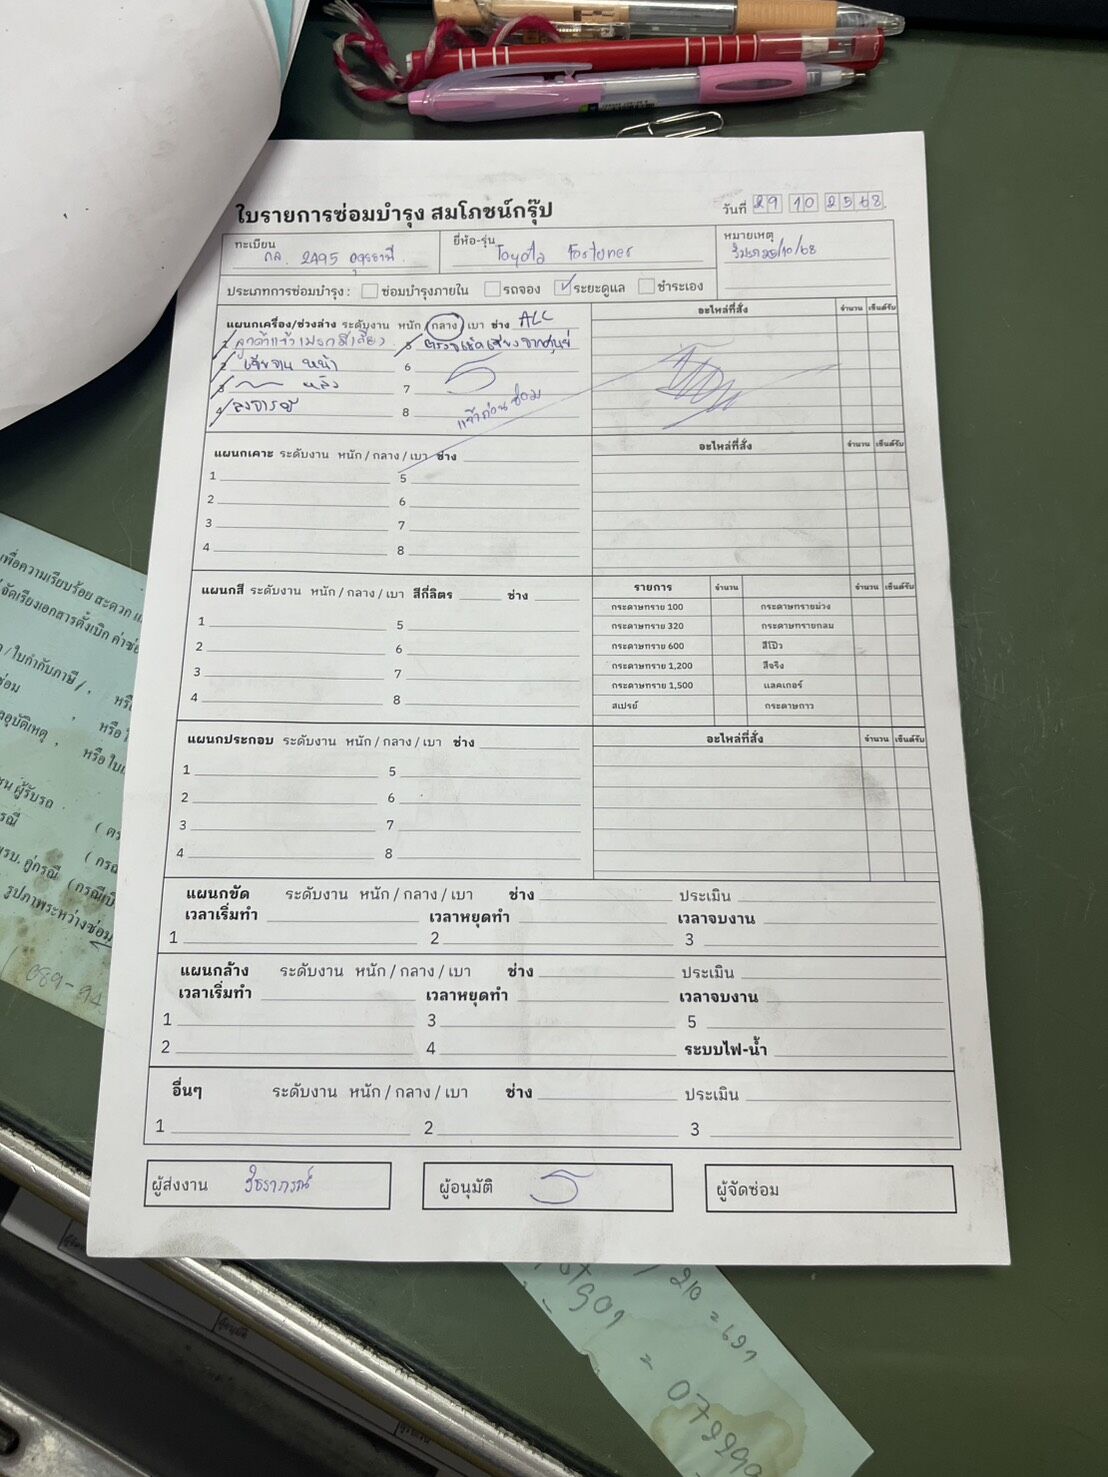 ใบรายการซ่อมบำรุง สมโภชน์กรุ๊ป
วันที่ 29 10 2568
ทะเบียน กล. 2495 อุดรธานี
ยี่ห้อ-รุ่น Toyota Fortuner
หมายเหตุ
25/10/68
ประเภทการซ่อมบำรุง : ซ่อมบำรุงภายใน รถจอง ระยะดูแล ชำระเอง
แผนกเครื่อง/ช่วงล่าง ระดับงาน หนัก / กลาง / เบา ช่าง ALC
อะไหล่ที่สั่ง จำนวน เซ็นต์รับ
1 ลูกค้าแจ้งเบรกมีเสียง 5
2 เจียจาน หน้า 6
3 หลัง 7
4 8
แจ้งก่อนซ่อม
แผนกเคาะ ระดับงาน หนัก / กลาง / เบา ช่าง
อะไหล่ที่สั่ง จำนวน เซ็นต์รับ
1 5
2 6
3 7
4 8
แผนกสี ระดับงาน หนัก / กลาง / เบา สีกี่ลิตร ช่าง
รายการ จำนวน จำนวน เซ็นต์รับ
กระดาษทราย 100 กระดาษทรายม่วง
กระดาษทราย 320 กระดาษทรายกลม
กระดาษทราย 600 สีโป๊ว
กระดาษทราย 1,200 สีจริง
กระดาษทราย 1,500 แลคเกอร์
สเปรย์ กระดาษกาว
1 5
2 6
3 7
4 8
แผนกประกอบ ระดับงาน หนัก / กลาง / เบา ช่าง
อะไหล่ที่สั่ง จำนวน เซ็นต์รับ
1 5
2 6
3 7
4 8
แผนกขัด ระดับงาน หนัก / กลาง / เบา ช่าง ประเมิน
เวลาเริ่มทำ เวลาหยุดทำ เวลาจบงาน
1 2 3
แผนกล้าง ระดับงาน หนัก / กลาง / เบา ช่าง ประเมิน
เวลาเริ่มทำ เวลาหยุดทำ เวลาจบงาน
1 3 5
2 4 ระบบไฟ-น้ำ
อื่นๆ ระดับงาน หนัก / กลาง / เบา ช่าง ประเมิน
1 2 3
ผู้ส่งงาน
ผู้อนุมัติ
ผู้จัดซ่อม
เพื่อความเรียบร้อย สะดวก
จัดเรียงเอกสารตั้งเบิก ค่าซ่อ
/ ใบกำกับภาษี / , หรื
ซ่อม , หรือ
อุบัติเหตุ , หรือ ใบ
ผู้รับรถ
รณี ( คร
พรบ. คู่กรณี ( กรณีเบิ
รูปภาพระหว่างซ่อม
089-94
/ 210 = 691